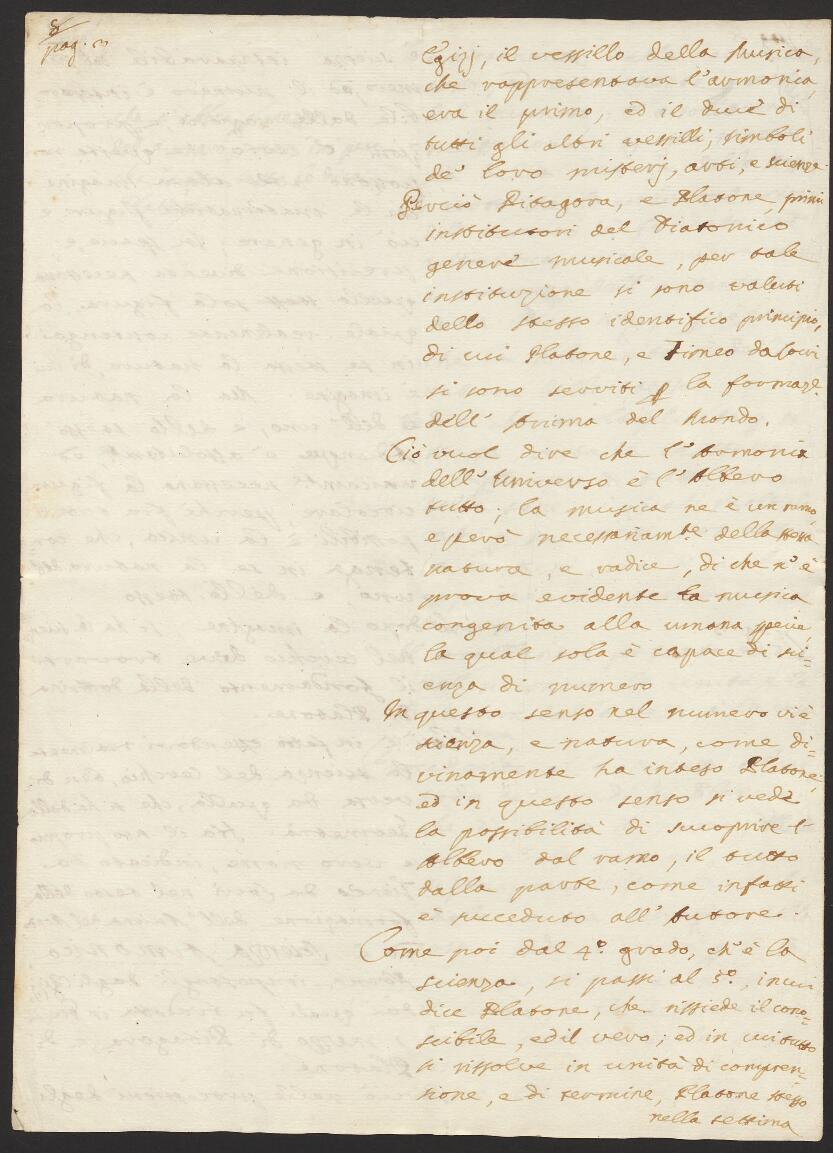 8
pag. 3
Egizj, il vessillo della Musica,
che rappresentava l'armonia,
era il primo, ed il duce di
tutti gli altri vessilli, simboli
de' loro misterj, arti, e scienze.
Perciò Pitagora, e Platone, primi
institutori del Diatonico
genere musicale, per tale
instituzione si sono valuti
dello stesso identifico principio,
di cui Platone, e Timeo da Locri
si sono serviti p la formaz.e
dell' Anima del Mondo.
Ciò vuol dire che l'Armonia
dell' Universo è l'Albero
tutto; la musica ne è un ramo,
e però necessariam.te della stessa
natura, e radice, di che n'è
prova evidente la musica
congenita alla umana specie,
la qual sola è capace di sci=
enza di numero
In questo senso nel numero vi è
scienza, e natura, come di=
vinamente ha inteso Platone:
ed in questo senso si vede
la possibilità di scuoprire l'
Albero dal ramo, il tutto
dalla parte, come infatti
è succeduto all' Autore.
Come poi dal 4.º grado, ch'è la
scienza, si passi al 5.º, in cui
dice Platone, che rissiede il cono=
scibile, ed il vero; ed in cui tutto
si rissolve in unità di compren=
sione, e di termine, Platone stesso
nella settima